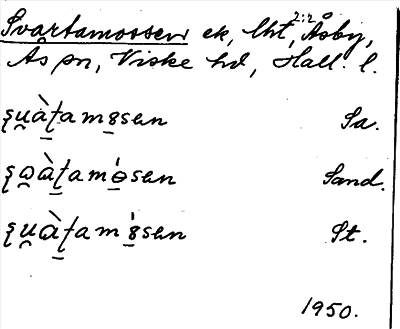 Svartamossen ek, lht, 2:2 Åsby,
As sn, Viske hd, Hall. l.
ʂu̯à̠ʈamo̠sen Sa.
ʂωà̠ʈamɵ̠́sen Sand.
ʂu̯à̠ʈam8̠́sen St.
1950.